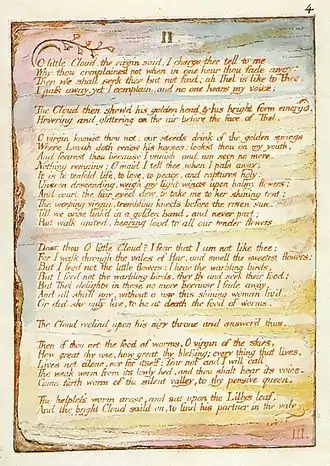 4
II
O little Cloud the virgin said, I charge thee tell to me
Why thou complainest not when in one hour thou fade away:
Then we shall seek thee but not find; ah Thel is like to Thee.
I pass away, yet I complain, and no one hears my voice.
The Cloud then shew'd his golden head & his bright form emerg'd,
Hovering and glittering on the air before the face of Thel.
O virgin know'st thou not, our steeds drink of the golden springs
Where Luvah doth renew his horses: look'st thou on my youth,
And fearest thou because I vanish and am seen no more.
Nothing remains; O maid I tell thee, when I pass away,
It is to tenfold life, to love, to peace, and raptures holy:
Unseen descending, weigh my light wings upon balmy flowers;
And court the fair eyed dew, to take me to her shining tent;
The weeping virgin, trembling kneels before the risen sun,
Till we arise link'd in a golden band, and never part;
But walk united, bearing food to all our tender flowers
Dost thou O little Cloud? I fear that I am not like thee;
For I walk through the vales of Har, and smell the sweetest flowers;
But I feed not the little flowers: I hear the warbling birds,
But I feed not the warbling birds, they fly and seek their food;
But Thel delights in these no more because I fade away,
And all shall say, without a use this shining woman liv'd,
Or did she only live, to be at death the food of worms.
The Cloud reclind upon his airy throne and answer'd thus.
Then if thou art the food of worms, O virgin of the skies,
How great thy use, how great thy blessing; every thing that lives,
Lives not alone, nor for itself: fear not and I will call
The weak worm from its lowly bed, and thou shalt hear its voice.
Come forth worm of the silent valley, to thy pensive queen.
The helpless worm arose, and sat upon the Lillys leaf,
And the bright Cloud saild on, to find his partner in the vale.
III.